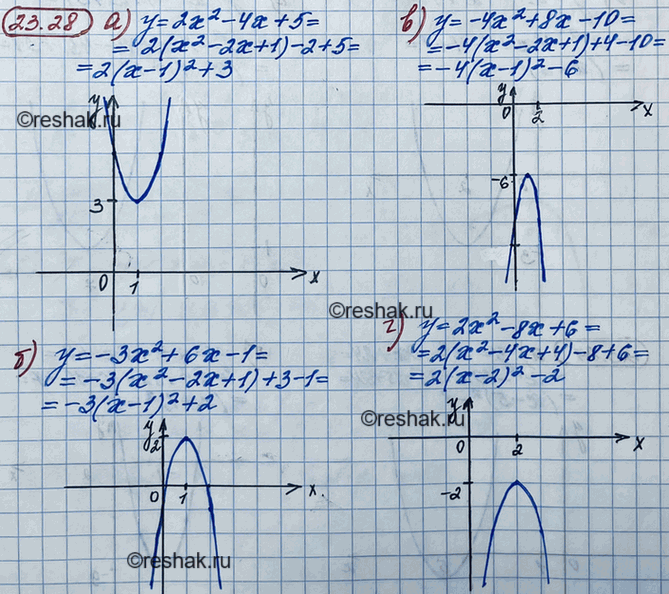 23.28 а) y = 2x² - 4x + 5 =
= 2(x² - 2x + 1) - 2 + 5 =
= 2(x - 1)² + 3
©reshak.ru
y
3
0
1
x
б) y = -3x² + 6x - 1 =
= -3(x² - 2x + 1) + 3 - 1 =
= -3(x - 1)² + 2
y
2
0
1
x.
©reshak.ru
в) y = -4x² + 8x - 10 =
= -4(x² - 2x + 1) + 4 - 10 =
= -4(x - 1)² - 6
y
0
2
x
-6
©reshak.ru
г) y = 2x² - 8x + 6 =
= 2(x² - 4x + 4) - 8 + 6 =
= 2(x - 2)² - 2
©reshak.ru
y
0
2
x
-2